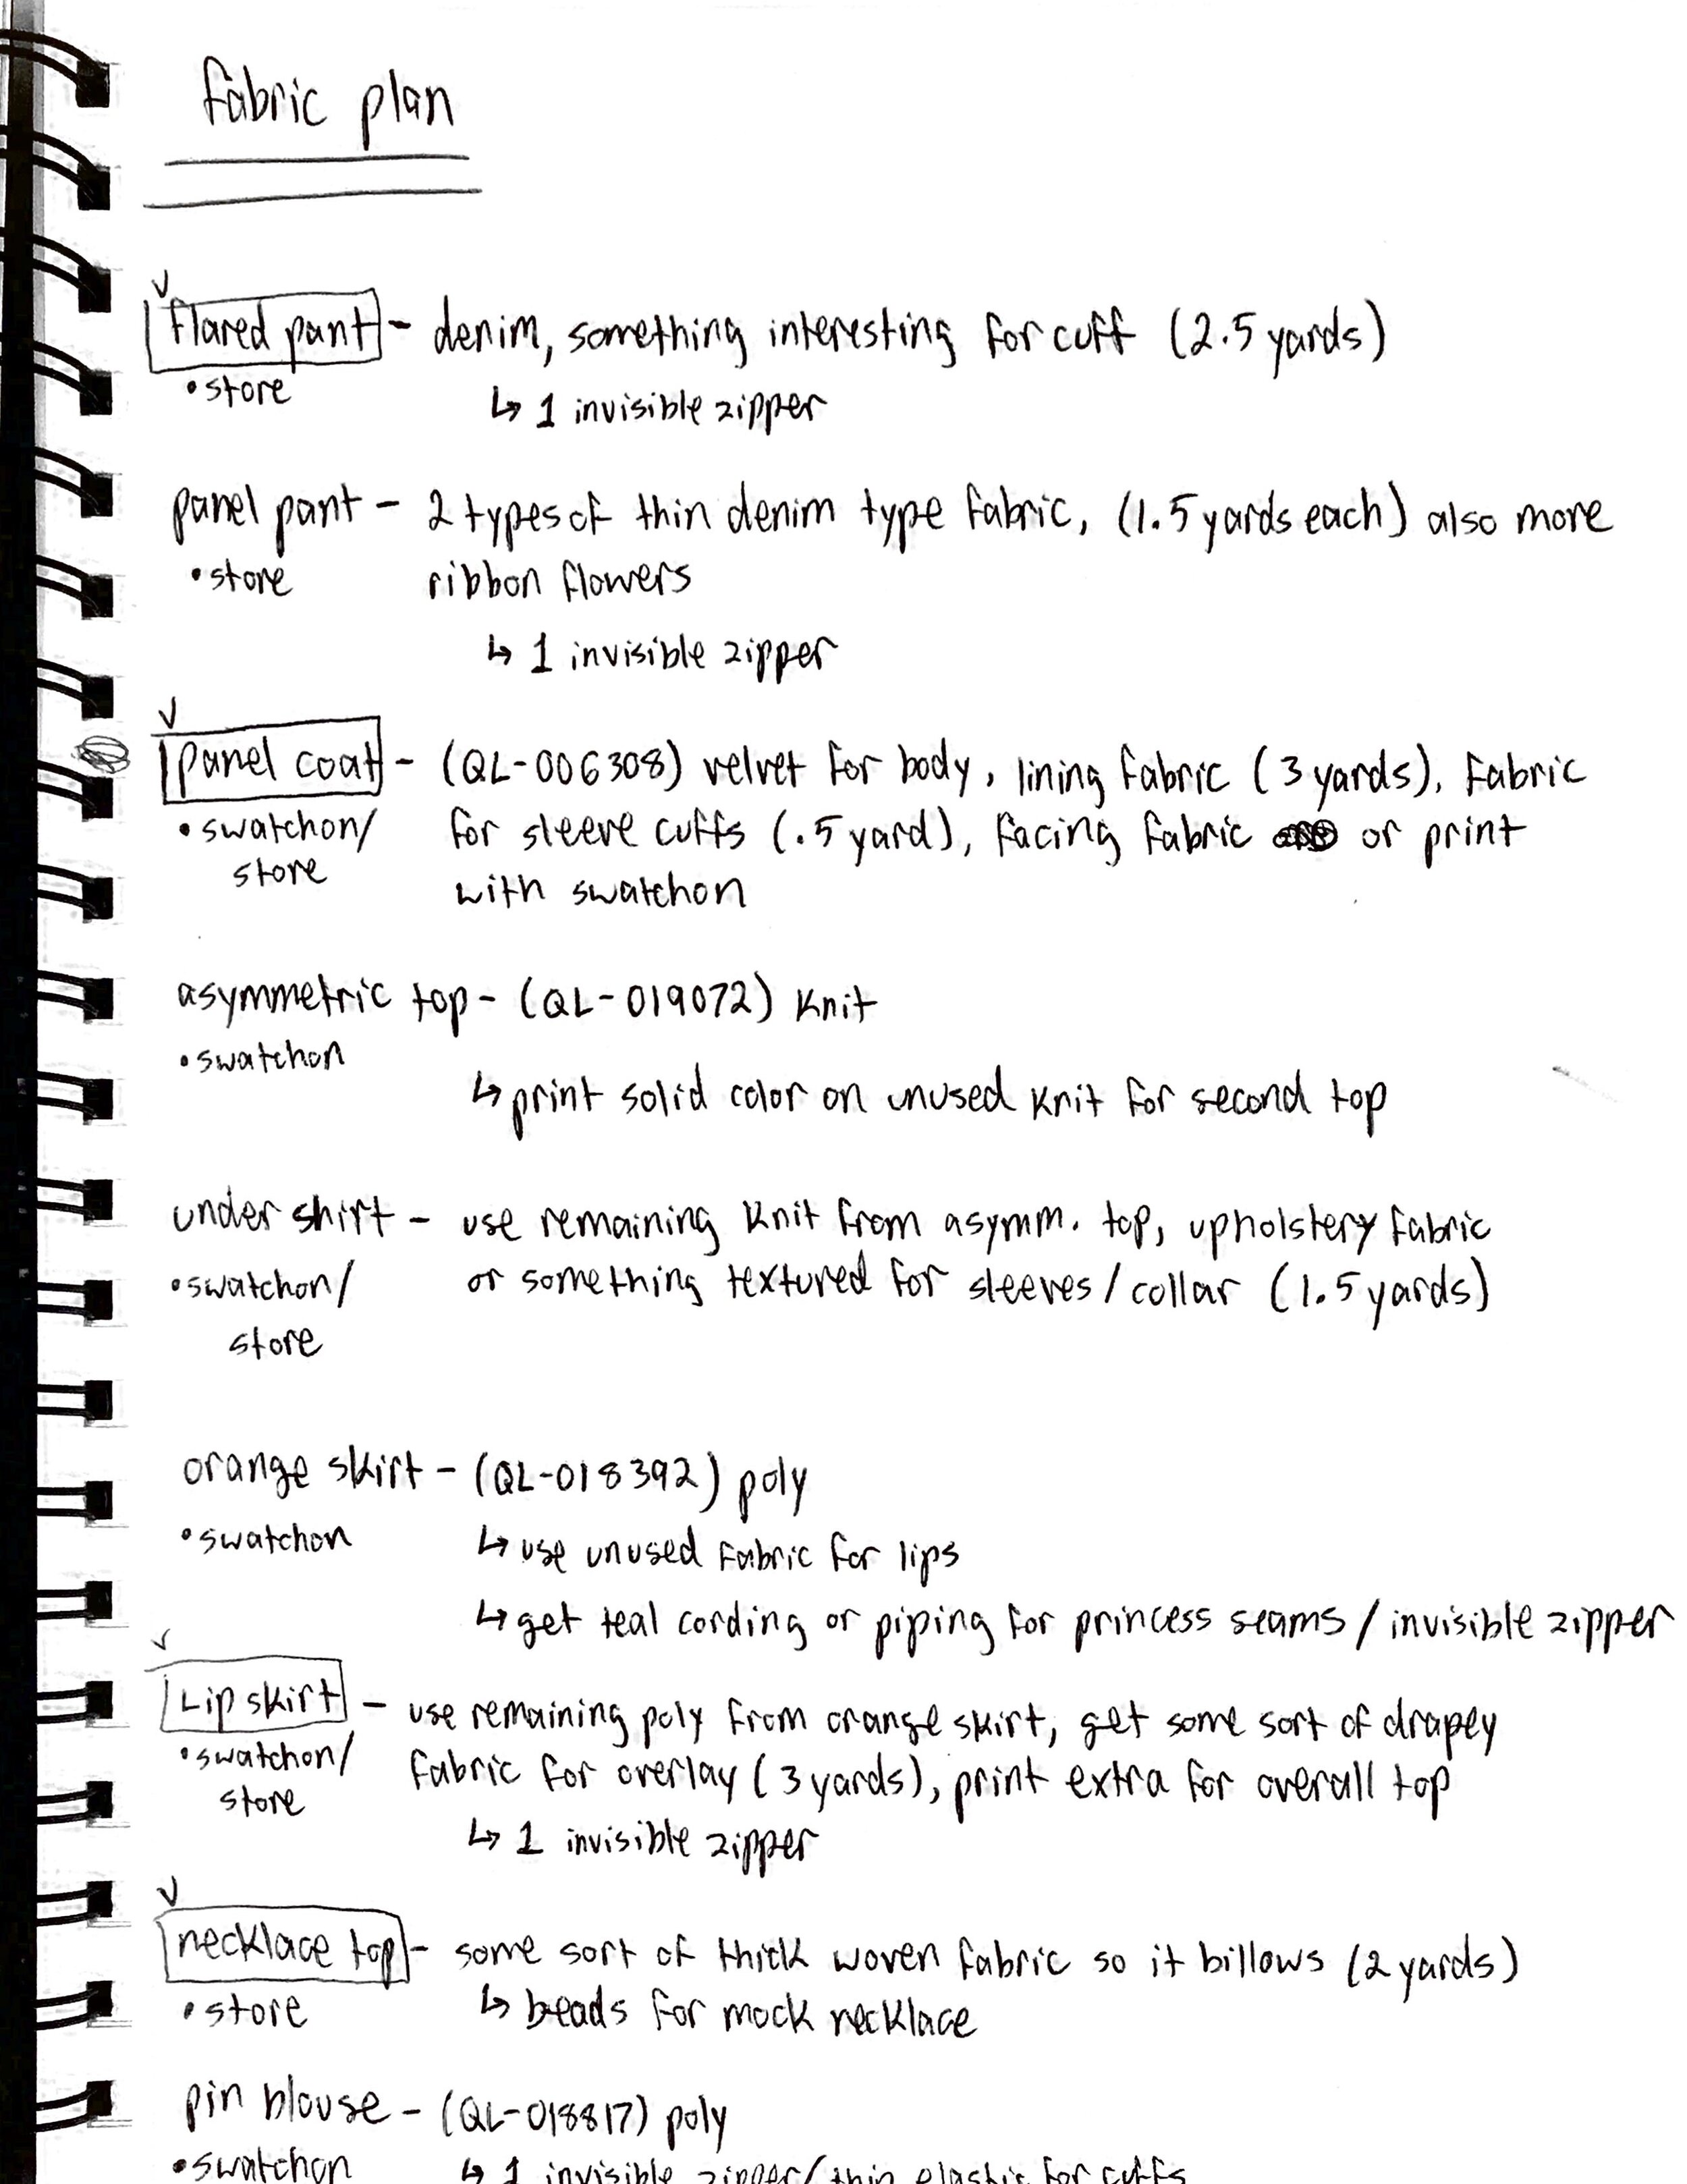 fabric plan
flared pant - denim, something interesting for cuff (2.5 yards)
• store ↳ 1 invisible zipper
panel pant - 2 types of thin denim type fabric, (1.5 yards each) also more
• store ribbon flowers
↳ 1 invisible zipper
panel coat - (QL-006308) velvet for body, lining fabric (3 yards), fabric
• swatchon/ for sleeve cuffs (.5 yard), facing fabric or print
store with swatchon
asymmetric top - (QL-019072) knit
• swatchon
↳ print solid color on unused knit for second top
under shirt - use remaining knit from asymm. top, upholstery fabric
• swatchon/ or something textured for sleeves/collar (1.5 yards)
store
orange skirt - (QL-018392) poly
• swatchon ↳ use unused fabric for lips
↳ get teal cording or piping for princess seams / invisible zipper
Lip skirt - use remaining poly from orange skirt, get some sort of drapey
• swatchon/ fabric for overlay (3 yards), print extra for overall top
store ↳ 1 invisible zipper
necklace top - some sort of thick woven fabric so it billows (2 yards)
• store ↳ beads for mock necklace
pin blouse - (QL-018817) poly
• swatchon ↳ 1 invisible zipper/thin elastic for cuffs